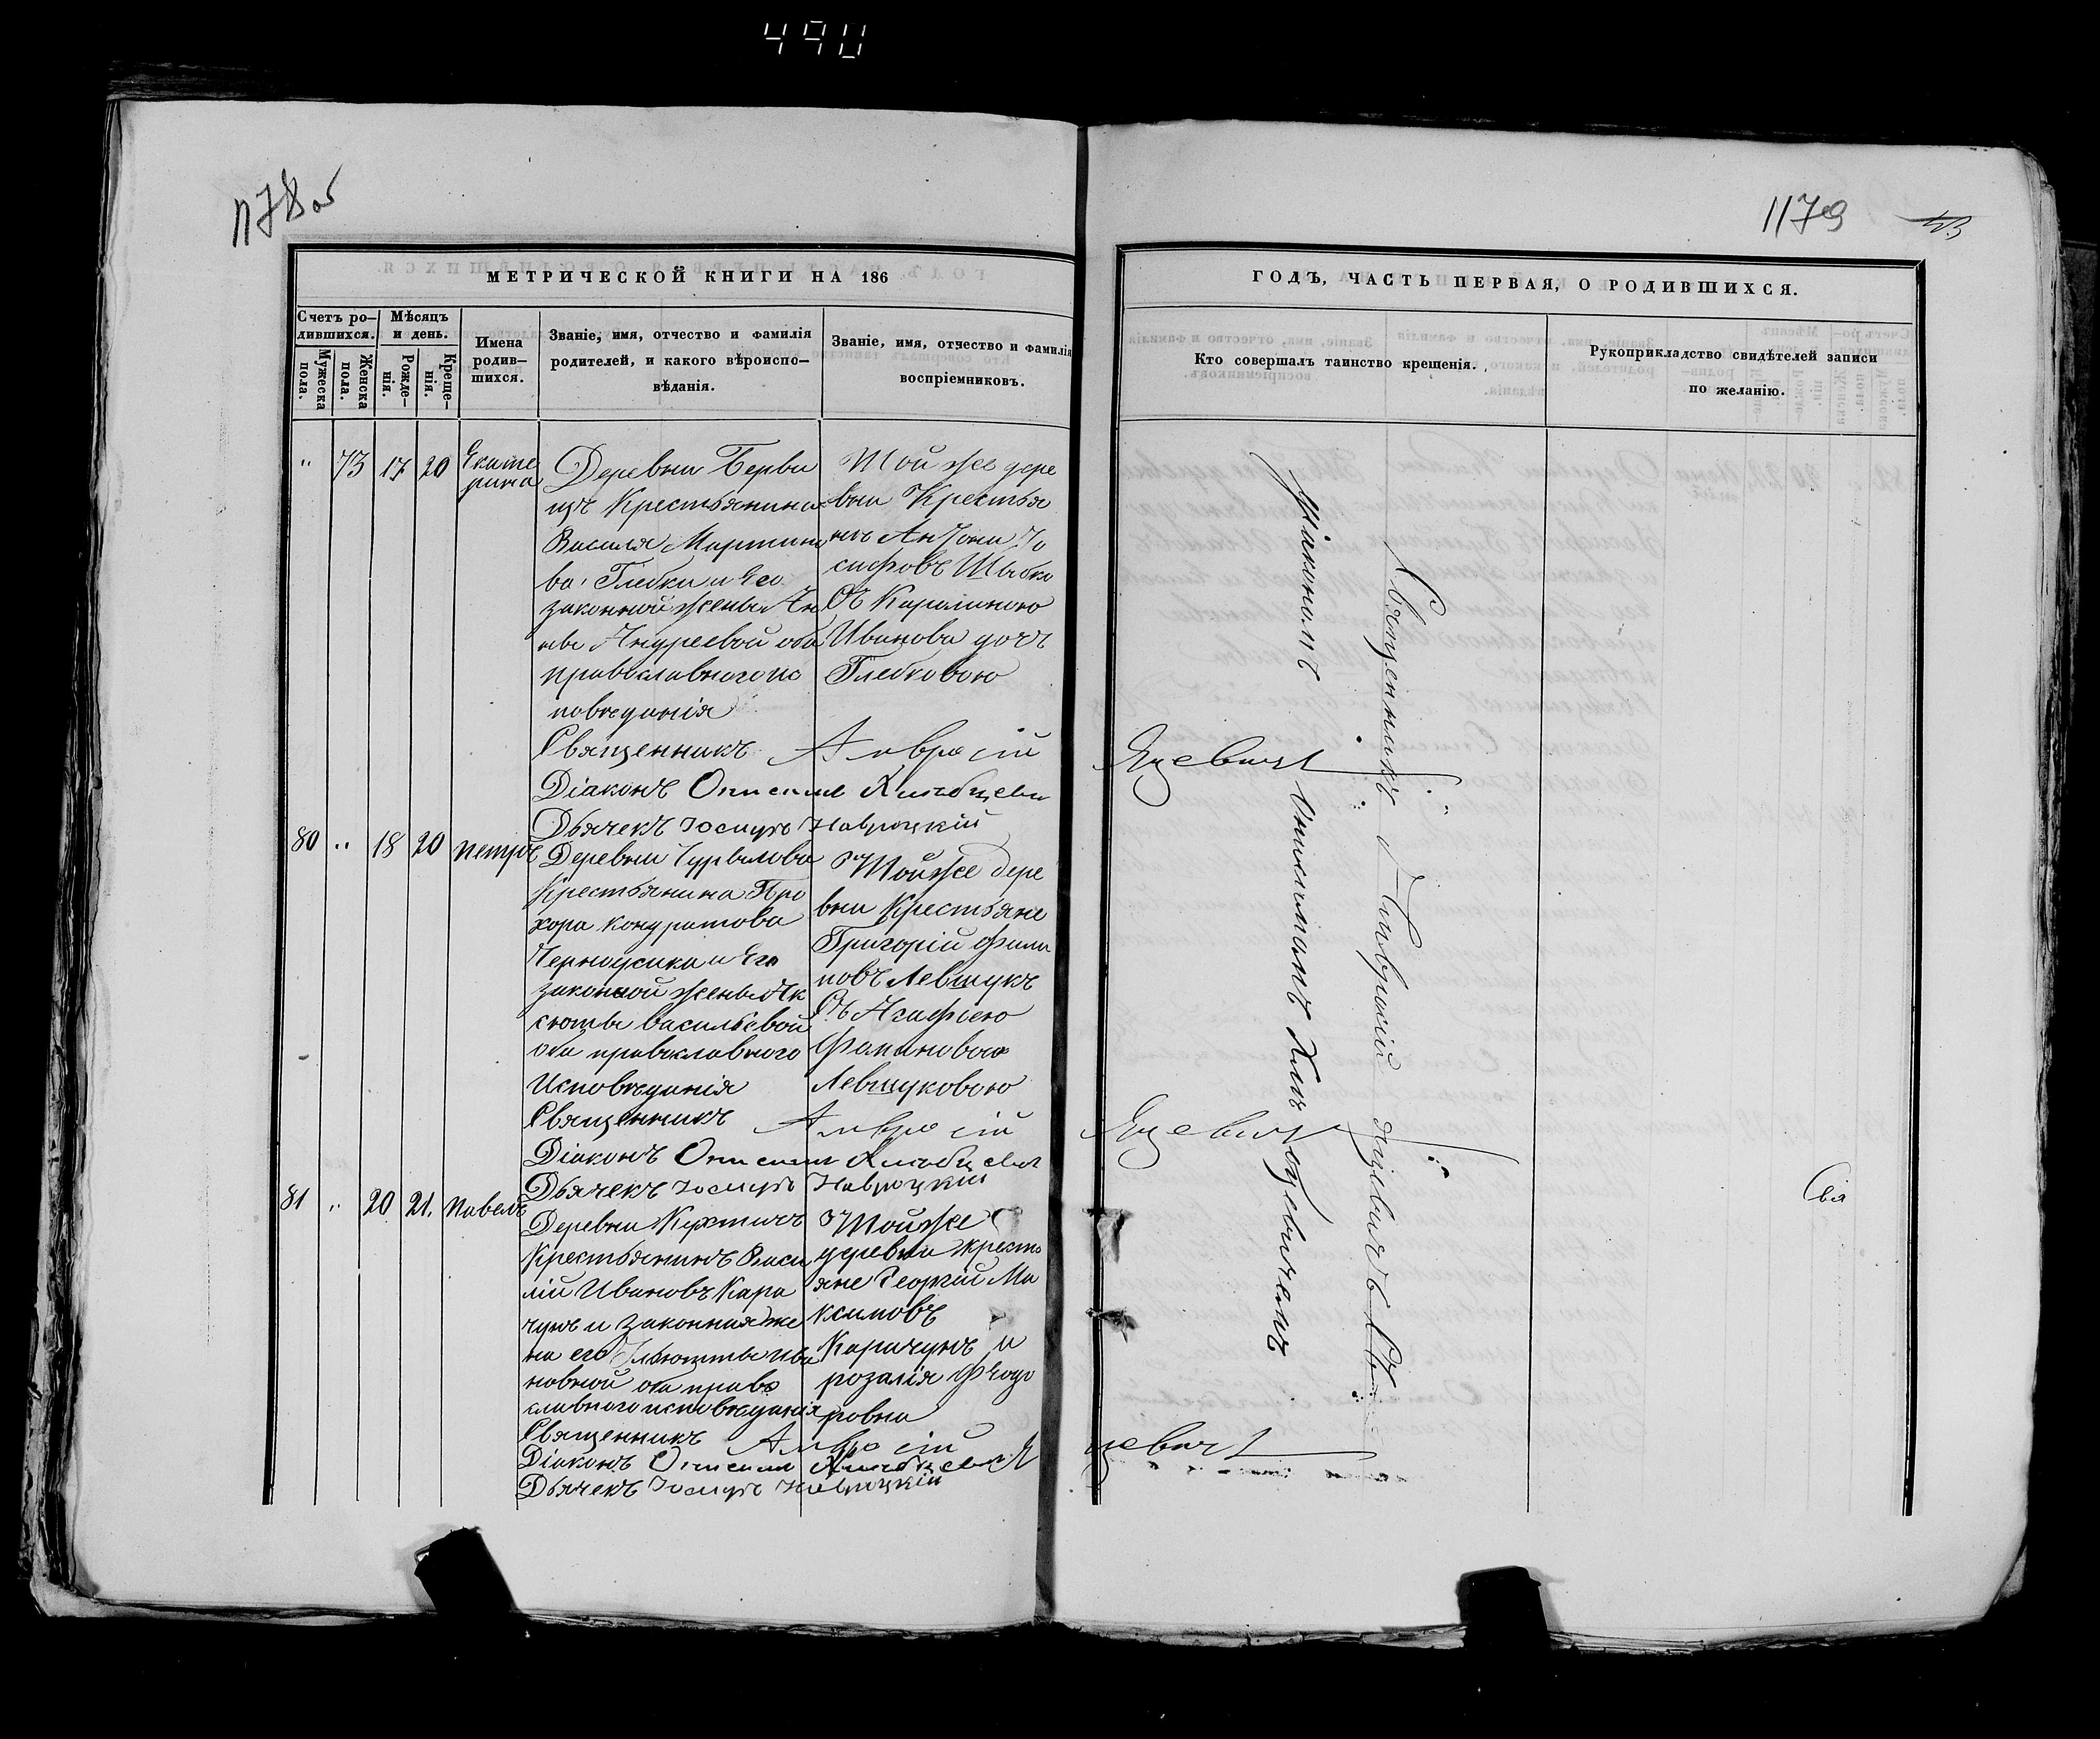 490
1178 об
1179
МЕТРИЧЕСКОЙ КНИГИ НА 186
ГОДЪ, ЧАСТЬ ПЕРВАЯ, О РОДИВШИХСЯ.
Счетъ ро-
дившихся.
Мужеска
пола.
Женска
пола.
Мѣсяцъ
и день.
Рожде-
нія.
Креще-
нія.
Имена
родив-
шихся.
Званіе, имя, отчество и фамилія
родителей, и какого вѣроиспо-
вѣданія.
Званіе, имя, отчество и фамилія
воспріемниковъ.
Кто совершалъ таинство крещенія.
Рукоприкладство свидѣтелей записи
по желанію.
" 73 17 20 Екате
рина
Деревни
Крестьянина
Василя Мартино
ва Глебки и Его
законной жены Ан
ны Андреевой оба
православного ис
поведанія
Той же дере
вни Крестья
нъ Антони Іо
сифовъ
Съ Каролиною
Иванова дочь
Глебковою
Священникъ Амвросій Яцевичъ
Діаконъ
Дьячекъ Іосифъ Навроцкій
80 " 18 20 Петръ
Деревни
Крестьянина Про
хора Кондратова
Черноусика и Его
законной жены Ак
сюты Васильевой
оба православного
Исповеданія
Той же дере
вни Крестьяне
Григорій Фили
повъ Левшукъ
Съ Агафіею
Левшуковою
Священникъ Амвросій Яцевичъ
Діаконъ
Дьячекъ Іосифъ Навроцкій
81 " 20 21. Павелъ
Деревни
Крестьянинъ Васи
лій Ивановъ Кара
чунъ и законная же
на его Ива
новной оба право
славного исповеданія
Той же
деревни кресть
яне Георгій Ма
ксимовъ
Карачунъ и
розалія Феодо
ровна
Священникъ Амвросій Яцевичъ
Діаконъ
Дьячекъ Іосифъ Навроцкій
Священникъ Амвросій Яцевичъ Съ
Діакономъ
Свя